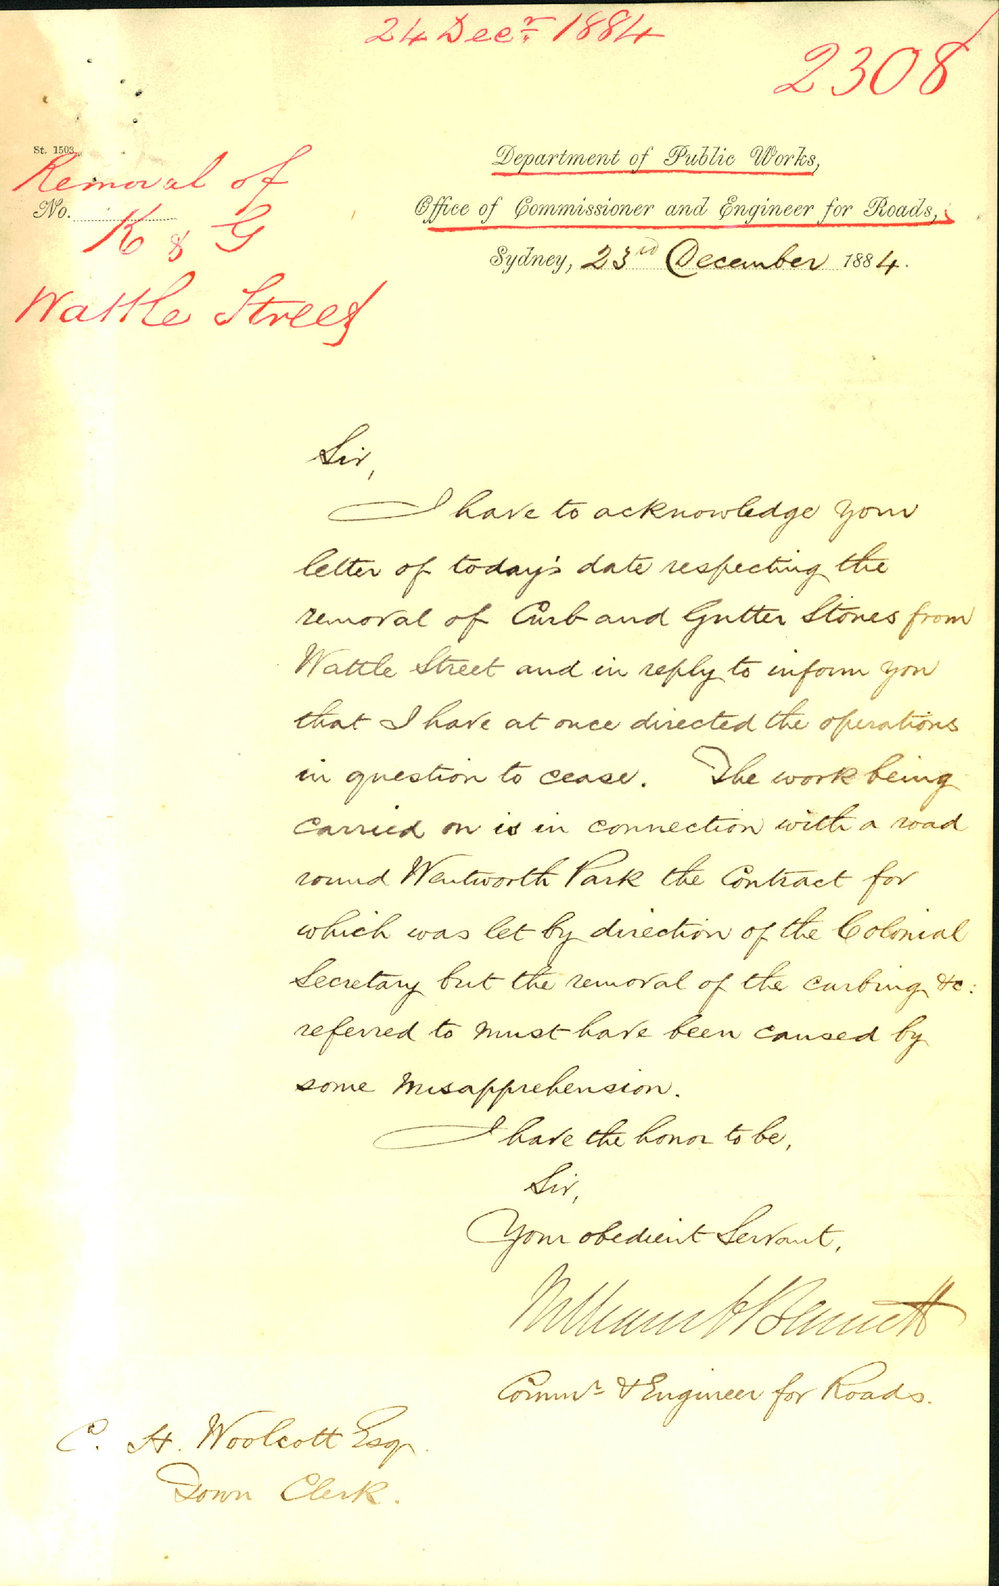 24 Decr. 1884
2308
St. 1503.
Removal of
No.
K & G
Wattle Street
Department of Public Works,
Office of Commissioner and Engineer for Roads,
Sydney, 23rd December 1884.
Sir,
I have to acknowledge your
letter of today's date respecting the
removal of Curb and Gutter Stones from
Wattle Street and in reply to inform you
that I have at once directed the operations
in question to cease. The work being
carried on is in connection with a road
round Wentworth Park the Contract for
which was let by direction of the Colonial
Secretary but the removal of the curbing &c:
referred to must have been caused by
some misapprehension.
I have the honor to be,
Sir,
Your obedient Servant,
William C Bennett
Commr. & Engineer for Roads.
C. H. Woolcott Esqr.
Town Clerk.